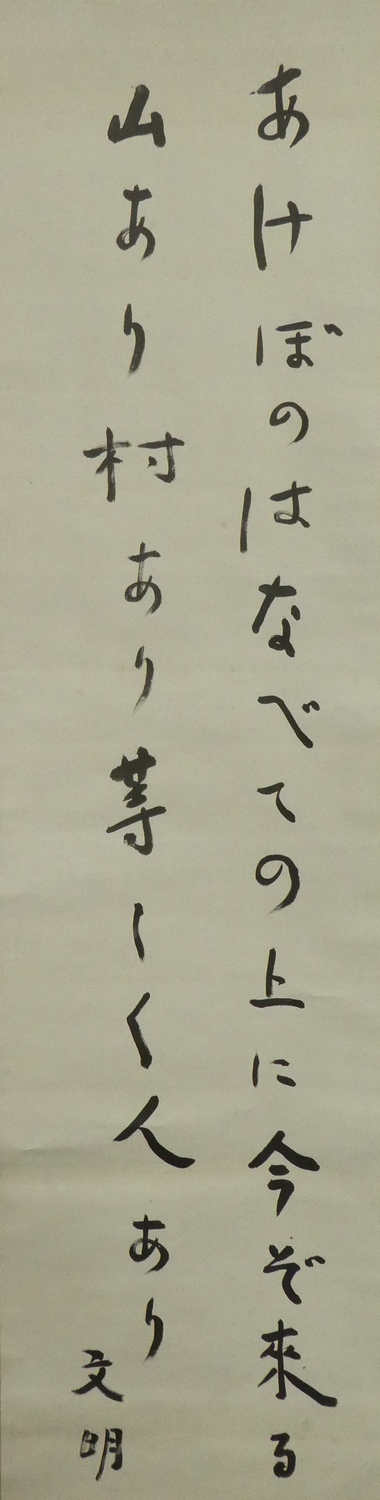 あけぼのはなべての上に今ぞ來る
山あり村あり等しく人あり
文明